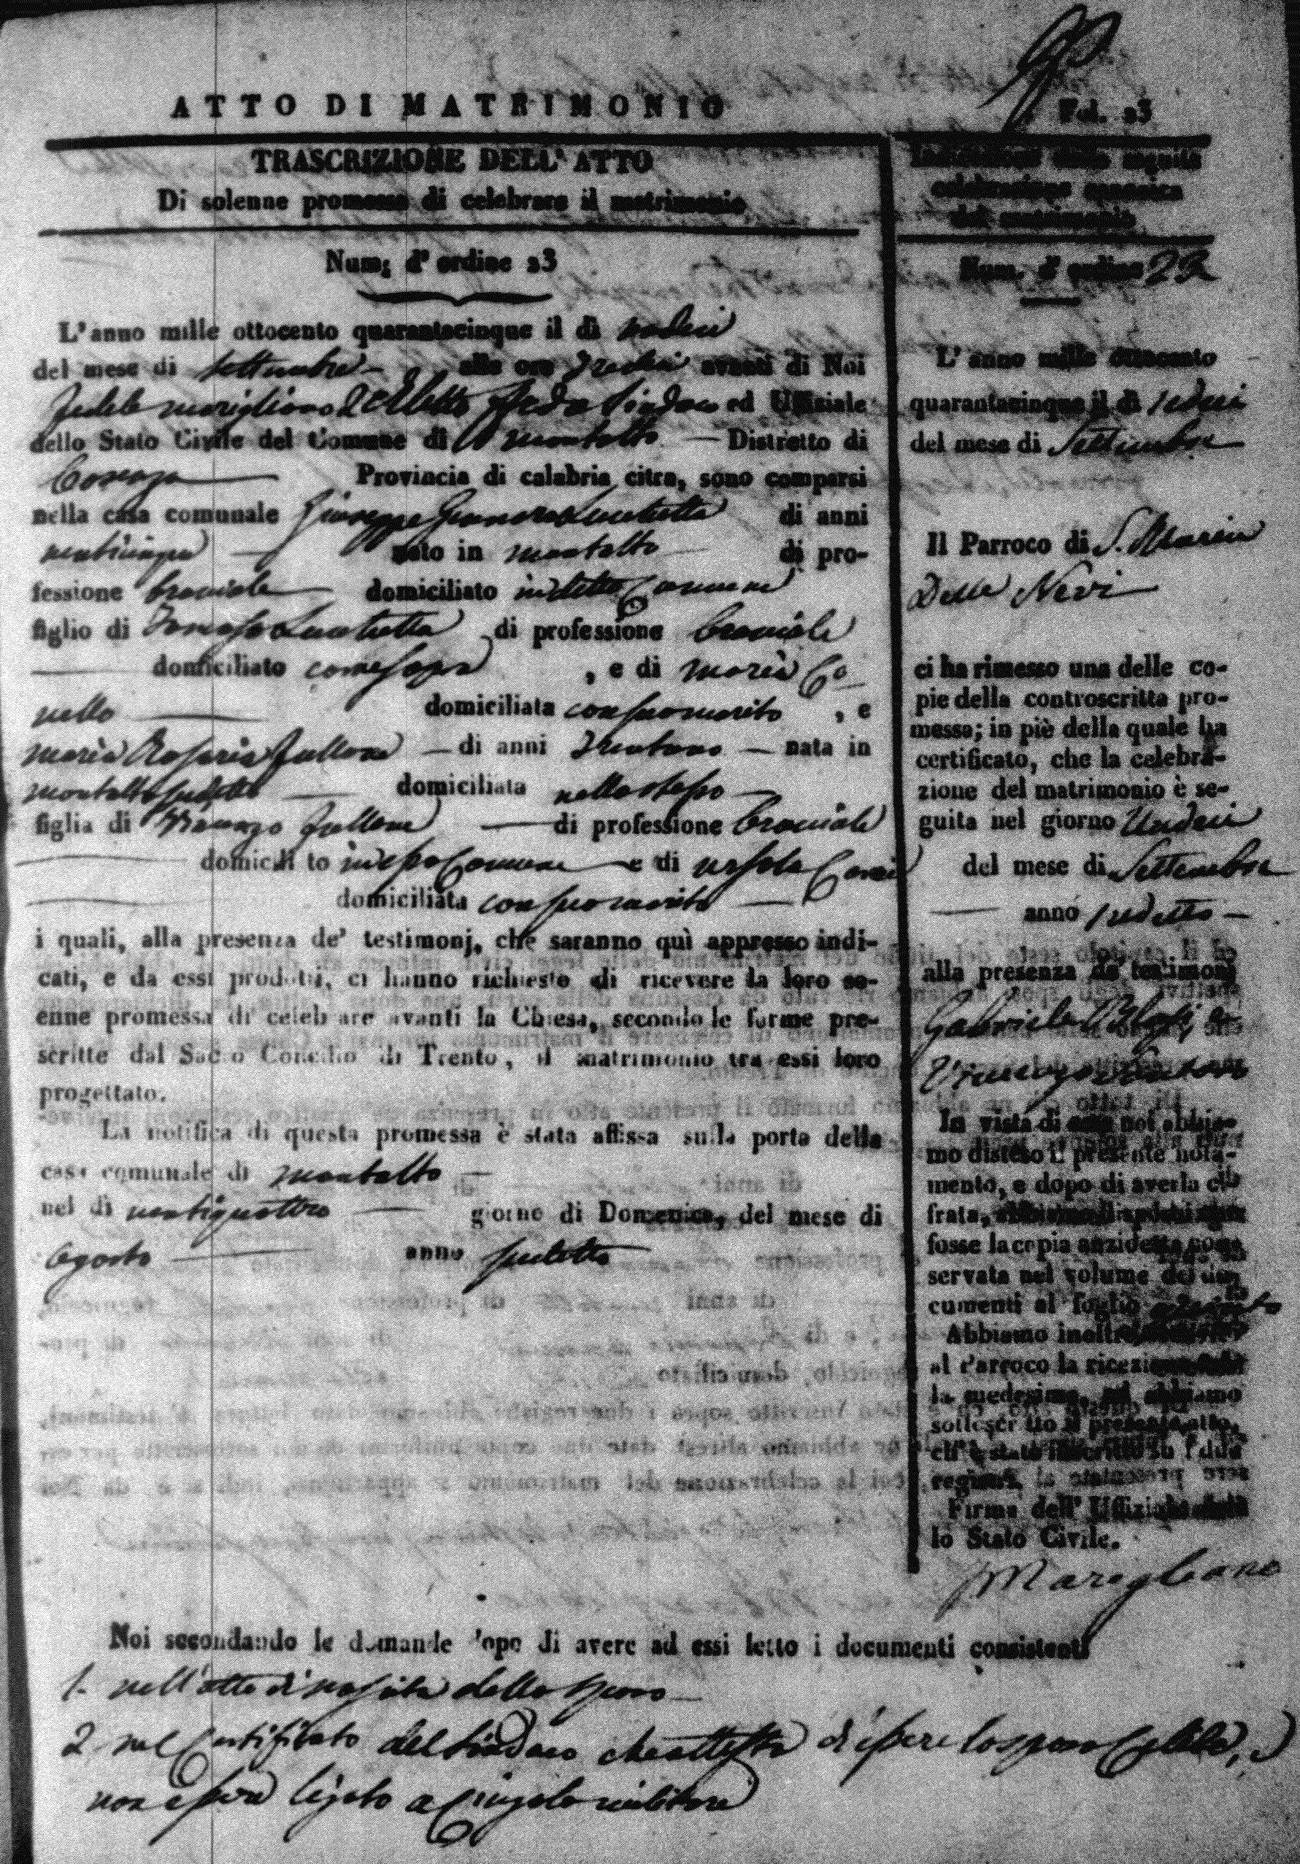 ATTO DI MATRIMONIO
Fol. 23
TRASCRIZIONE DELL' ATTO
Di solenne promessa di celebrare il matrimonio
Num; d' ordine 23
L' anno mille ottocento quarantacinque il dì undeci
del mese di settembre alle ore tredici avanti di Noi
Fedele Marigliano Sindaco ed Uffiziale
dello Stato Civile del Comune di Montalto Distretto di
Cosenza Provincia di calabria citra, sono comparsi
nella casa comunale Giuseppe Luchetta di anni
venticinque nato in montalto di pro-
fessione bracciale domiciliato in detto Comune
figlio di Tomaso Luchetta di professione bracciale
domiciliato come sopra , e di maria Co
nello domiciliata con suo marito , e
maria Rosaria Fullone di anni trentuno nata in
montalto sudetto domiciliata nello stesso
figlia di Vincenzo Fullone di professione bracciale
domicili to in esso Comune e di ursola
domiciliata con suo marito
i quali, alla presenza de' testimonj, che saranno quì appresso indi-
cati, e da essi prodotti, ci hanno richiesto di ricevere la loro so-
enne promessa di celebrare avanti la Chiesa, secondo le forme pre-
scritte dal Sacro Concilio di Trento, il matrimonio tra essi loro
progettato.
La notifica di questa promessa è stata affissa sulla porta della
casa comunale di montalto
nel dì ventiquattro giorno di Domenica, del mese di
Agosto anno sudetto
Indicazione della seguita
celebrazione canonica
del matrimonio
Num. d' ordine 23
L' anno mille ottocento
quarantacinque il dì sedeci
del mese di Settembre
Il Parroco di S. Maria
Delle Nevi
ci ha rimesso una delle co-
pie della controscritta pro-
messa; in piè della quale ha
certificato, che la celebra-
zione del matrimonio è se-
guita nel giorno Undeci
del mese di Settembre
anno sudetto
alla presenza de' testimonj
Gabriele Blasi e
Vincenzo
In vista di essa noi abbia-
mo disteso il presente nota-
mento, e dopo di averla ci-
frata,
fosse la copia anzidetta con-
servata nel volume dei do-
cumenti al foglio
Abbiamo inoltre
al Parroco la ricezione
la medesima, ed abbiamo
sottoscritto il presente atto,
ch' è stato inscritto su i due
registri.
Firma dell' Uffiziale del-
lo Stato Civile.
Marigliano
Noi secondando le domande dopo di avere ad essi letto i documenti consistenti
1. nell' atto di nascita dello sposo
2 nel Certificato del Sindaco che attesta di essere lo sposo Celibe, e
non essere ligato a Cingolo militare